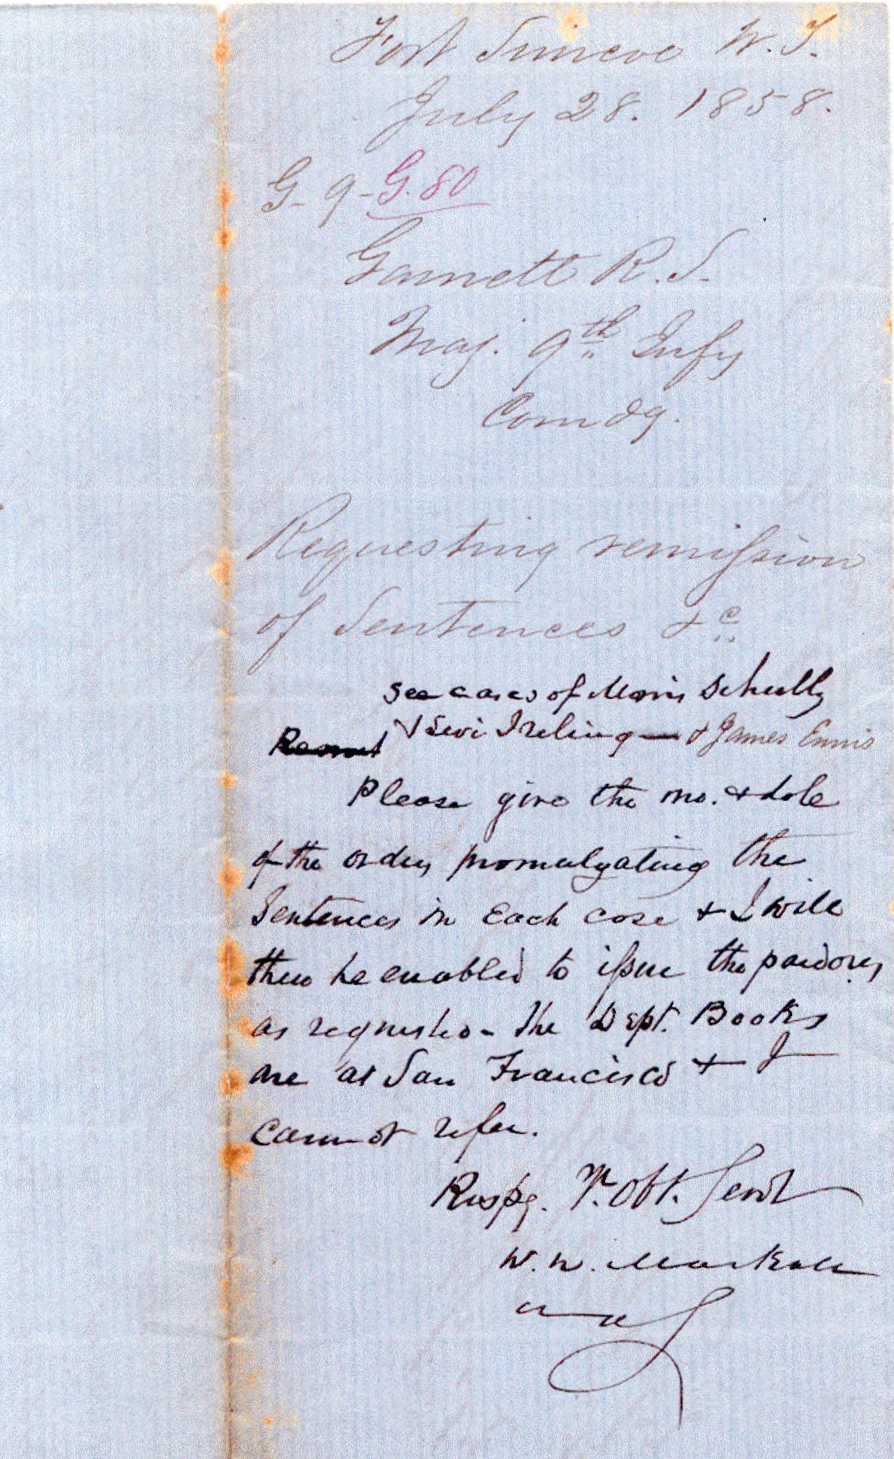 Fort Simcoe W. T.
July 28. 1858.
G- 9- G. 80
Garnett R. S.
Maj. 9th Infy
Comdg.
Requesting remission
of Sentences &c.
See cases of Morris Schully
& Levi Ireling — & James Ennis
Please give the no. & date
of the orders promulgating the
Sentences in Each case & I will
then be enabled to issue the pardons,
as requested- The Dept. Books
are at San Francisco & I
cannot refer.
Respy. Yr. Obt. Servt
W. W. Mackall